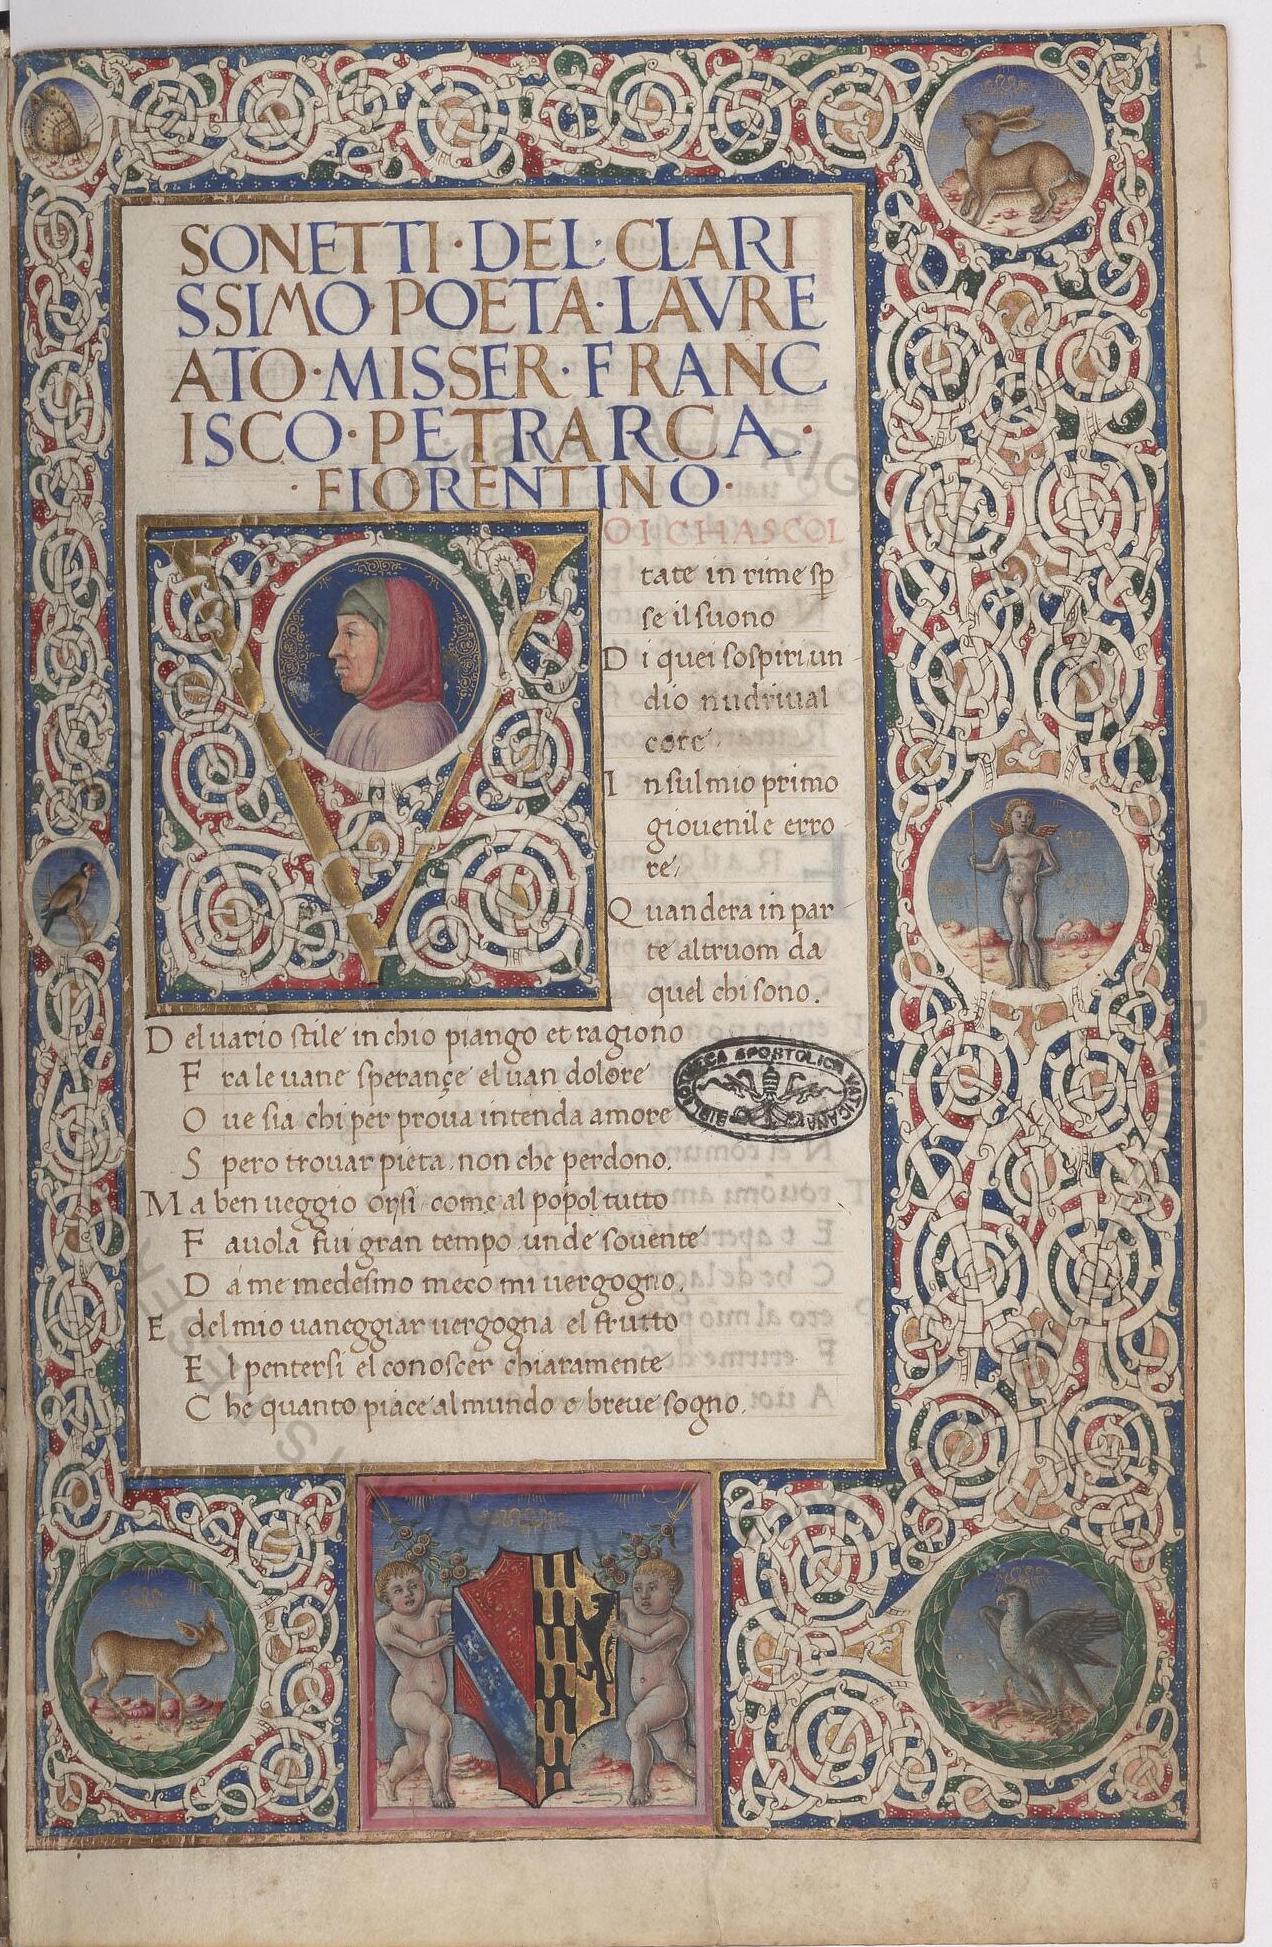 1
SONETTI · DEL · CLARI
SSIMO · POETA · LAVRE
ATO · MISSER · FRANC
ISCO · PETRARCA ·
· FIORENTINO ·
V OI CHASCOL
tate in rime sp
se il suono
D i quei sospiri un
dio nudriual
core
I nsul mio primo
giouenile erro
re
Q uandera in par
te altruom da
quel chi sono.
D el uario stile in chio piango et ragiono
F ra le uane sperançe el uan dolore
O ue sia chi per proua intenda amore
S pero trouar pieta non che perdono.
M a ben ueggio orsi come al popol tutto
F auola fui gran tempo unde souente
D a me medesmo meco mi uergogno.
E del mio uaneggiar uergogna el frutto
E l pentersi el conoscer chiaramente
C he quanto piace al mundo e breue sogno.
BIBLIOTECA APOSTOLICA VATICANA